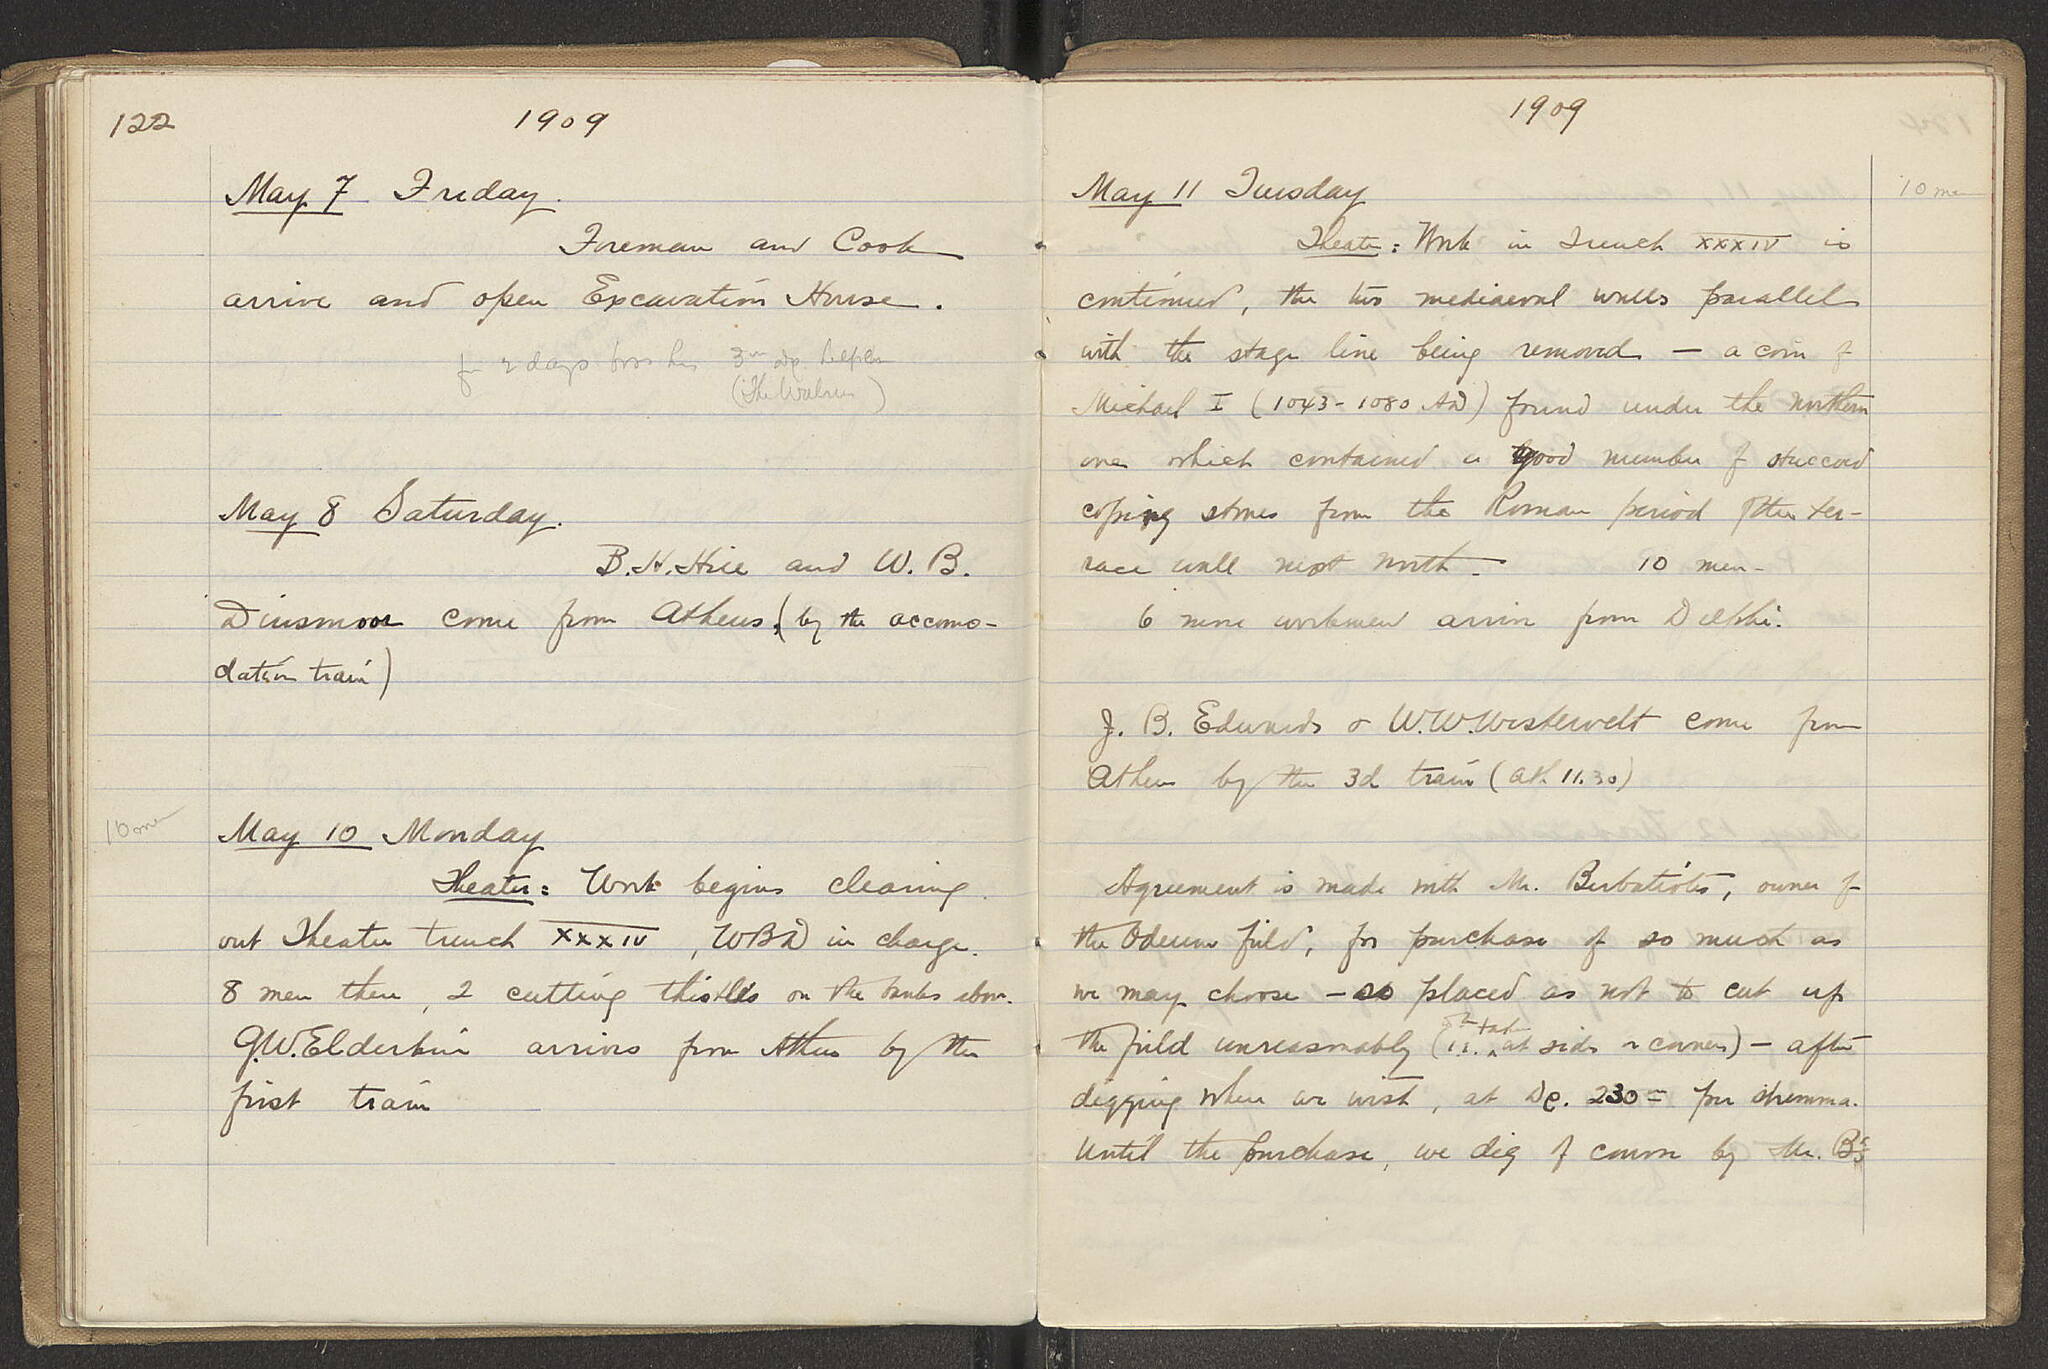 122
1909
May 7 Friday.
Foreman and Cook
arrive and open Excavation House.
for 2 days 3 Dp. helper
(The Walrus)
May 8 Saturday.
B.H.Hill and W.B.
Dinsmoor come from Athens, (by the accomo-
dation train)
10 men
May 10 Monday
Theater: Work begins clearing
out Theater trench XXXIV, WBD in charge.
8 men there, 2 cutting thistles on the banks above.
G.W.Elderkin arrives from Athens by the
first train
1909
10 men
May 11 Tuesday
Theater: Work in Trench XXXIV is
continued, the two mediaeval walls parallel
with the stage line being removed – a coin of
Michael I (1043-1080 AD) found under the northern
one which contained a good number of stuccoed
coping stones from the Roman period of the ter-
race wall next north. 10 men.
6 more workmen arrive from Delphi.
J. B. Edwards & W.W.Westervelt come from
Athens by the 3d train (at 11.30)
Agreement is made with Mr. Berbatiotes, owner of
the Odeum field, for purchase of so much as
we may choose – so placed as not to cut up
the field unreasonably (i.e. taken at sides or corners) – after
digging where we wish, at Dr. 230 = per stremma.
Until the purchase, we dig of course by Mr. B's